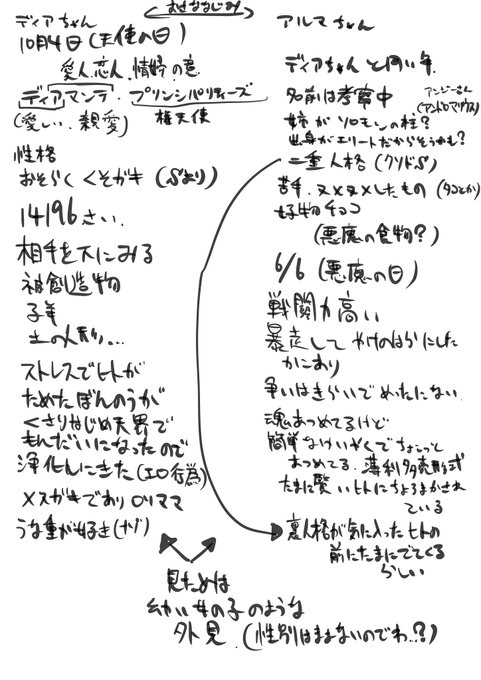 おさななじみ
ディアちゃん
10月4日(天使の日)
愛人.恋人.情婦の意
ディアマンテ.プリンシパリティーズ
(愛しい.親愛)
権天使
性格
おそらく くそガキ (Sより)
14196さい.
相手を下にみる
神創造物
土の人形...
ストレスでヒトが
ためたぼんのうが
くさりはじめ天界で
もんだいになったので
浄化しにきた(エロ行為)
メスガキでありロリママ
うな重が好き(ナゾ)
アルマちゃん
ディアちゃんと同い年.
名前は考察中
アンジーさん
(アンドロマリウス)
姉がソロモンの柱?
出身がエリートだからそうかも?
二重人格(クソドS)
苦手.ヌメヌメしたもの(タコとか)
好物チョコ
(悪魔の食物?)
6/6(悪魔の日)
戦闘力高い
暴走して やけのはらにした
かこあり
争いはきらいでめったにない.
魂あつめてるけど
簡単なけいやくでちょこっと
あつめてる.薄利多売形式
たまに賢いヒトにちょろまかされ
ている
裏人格が気に入ったヒトの
前にたまにでてくる
らしい
見ためは
幼い女の子のような
外見.(性別はまよないのでわ..?)